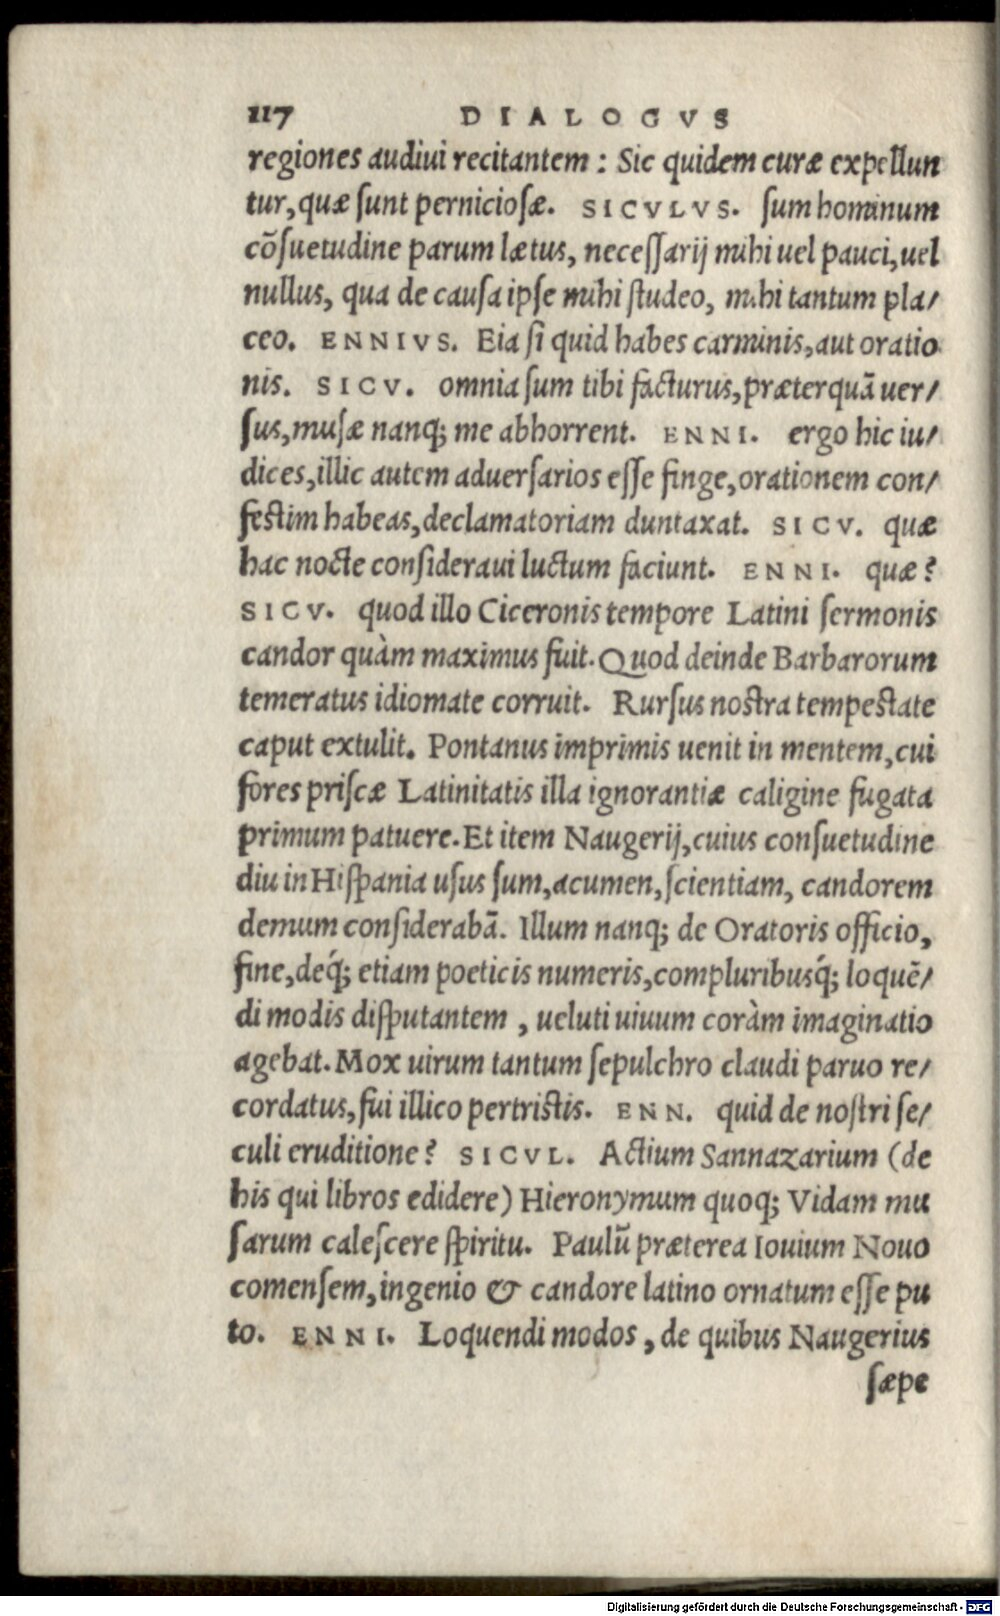 117 DIALOGVS
regiones audiui recitantem : Sic quidem curæ expellun
tur, quæ ſunt pernicioſæ. SICVLVS. ſum hominum
cõſuetudine parum lætus, neceſſarij mihi uel pauci, uel
nullus, qua de cauſa ipſe mihi ſtudeo, mihi tantum pla/
ceo. ENNIVS. Eia ſi quid habes carminis, aut oratio
nis. SICV. omnia ſum tibi facturus, præterquã uer/
ſus, muſæ nanq; me abhorrent. ENNI. ergo hic iu/
dices, illic autem aduerſarios eſſe finge, orationem con/
feſtim habeas, declamatoriam duntaxat. SICV. quæ
hac nocte conſideraui luctum faciunt. ENNI. quæ?
SICV. quod illo Ciceronis tempore Latini ſermonis
candor quàm maximus fuit. Quod deinde Barbarorum
temeratus idiomate corruit. Rurſus noſtra tempeſtate
caput extulit. Pontanus imprimis uenit in mentem, cui
fores priſcæ Latinitatis illa ignorantiæ caligine fugata
primum patuere. Et item Naugerij, cuius conſuetudine
diu in Hiſpania uſus ſum, acumen, ſcientiam, candorem
demum conſiderabã. Illum nanq; de Oratoris officio,
fine, deq́; etiam poeticis numeris, compluribusq́; loquẽ/
di modis diſputantem , ueluti uiuum coràm imaginatio
agebat. Mox uirum tantum ſepulchro claudi paruo re/
cordatus, fui illico pertriſtis. ENN. quid de noſtri ſe/
culi eruditione? SICVL. Actium Sannazarium (de
his qui libros edidere) Hieronymum quoq; Vidam mu
ſarum caleſcere ſpiritu. Paulũ præterea Iouium Nouo
comenſem, ingenio & candore latino ornatum eſſe pu
to. ENNI. Loquendi modos , de quibus Naugerius
ſæpe
Digitalisierung gefördert durch die Deutsche Forschungsgemeinschaft - DFG